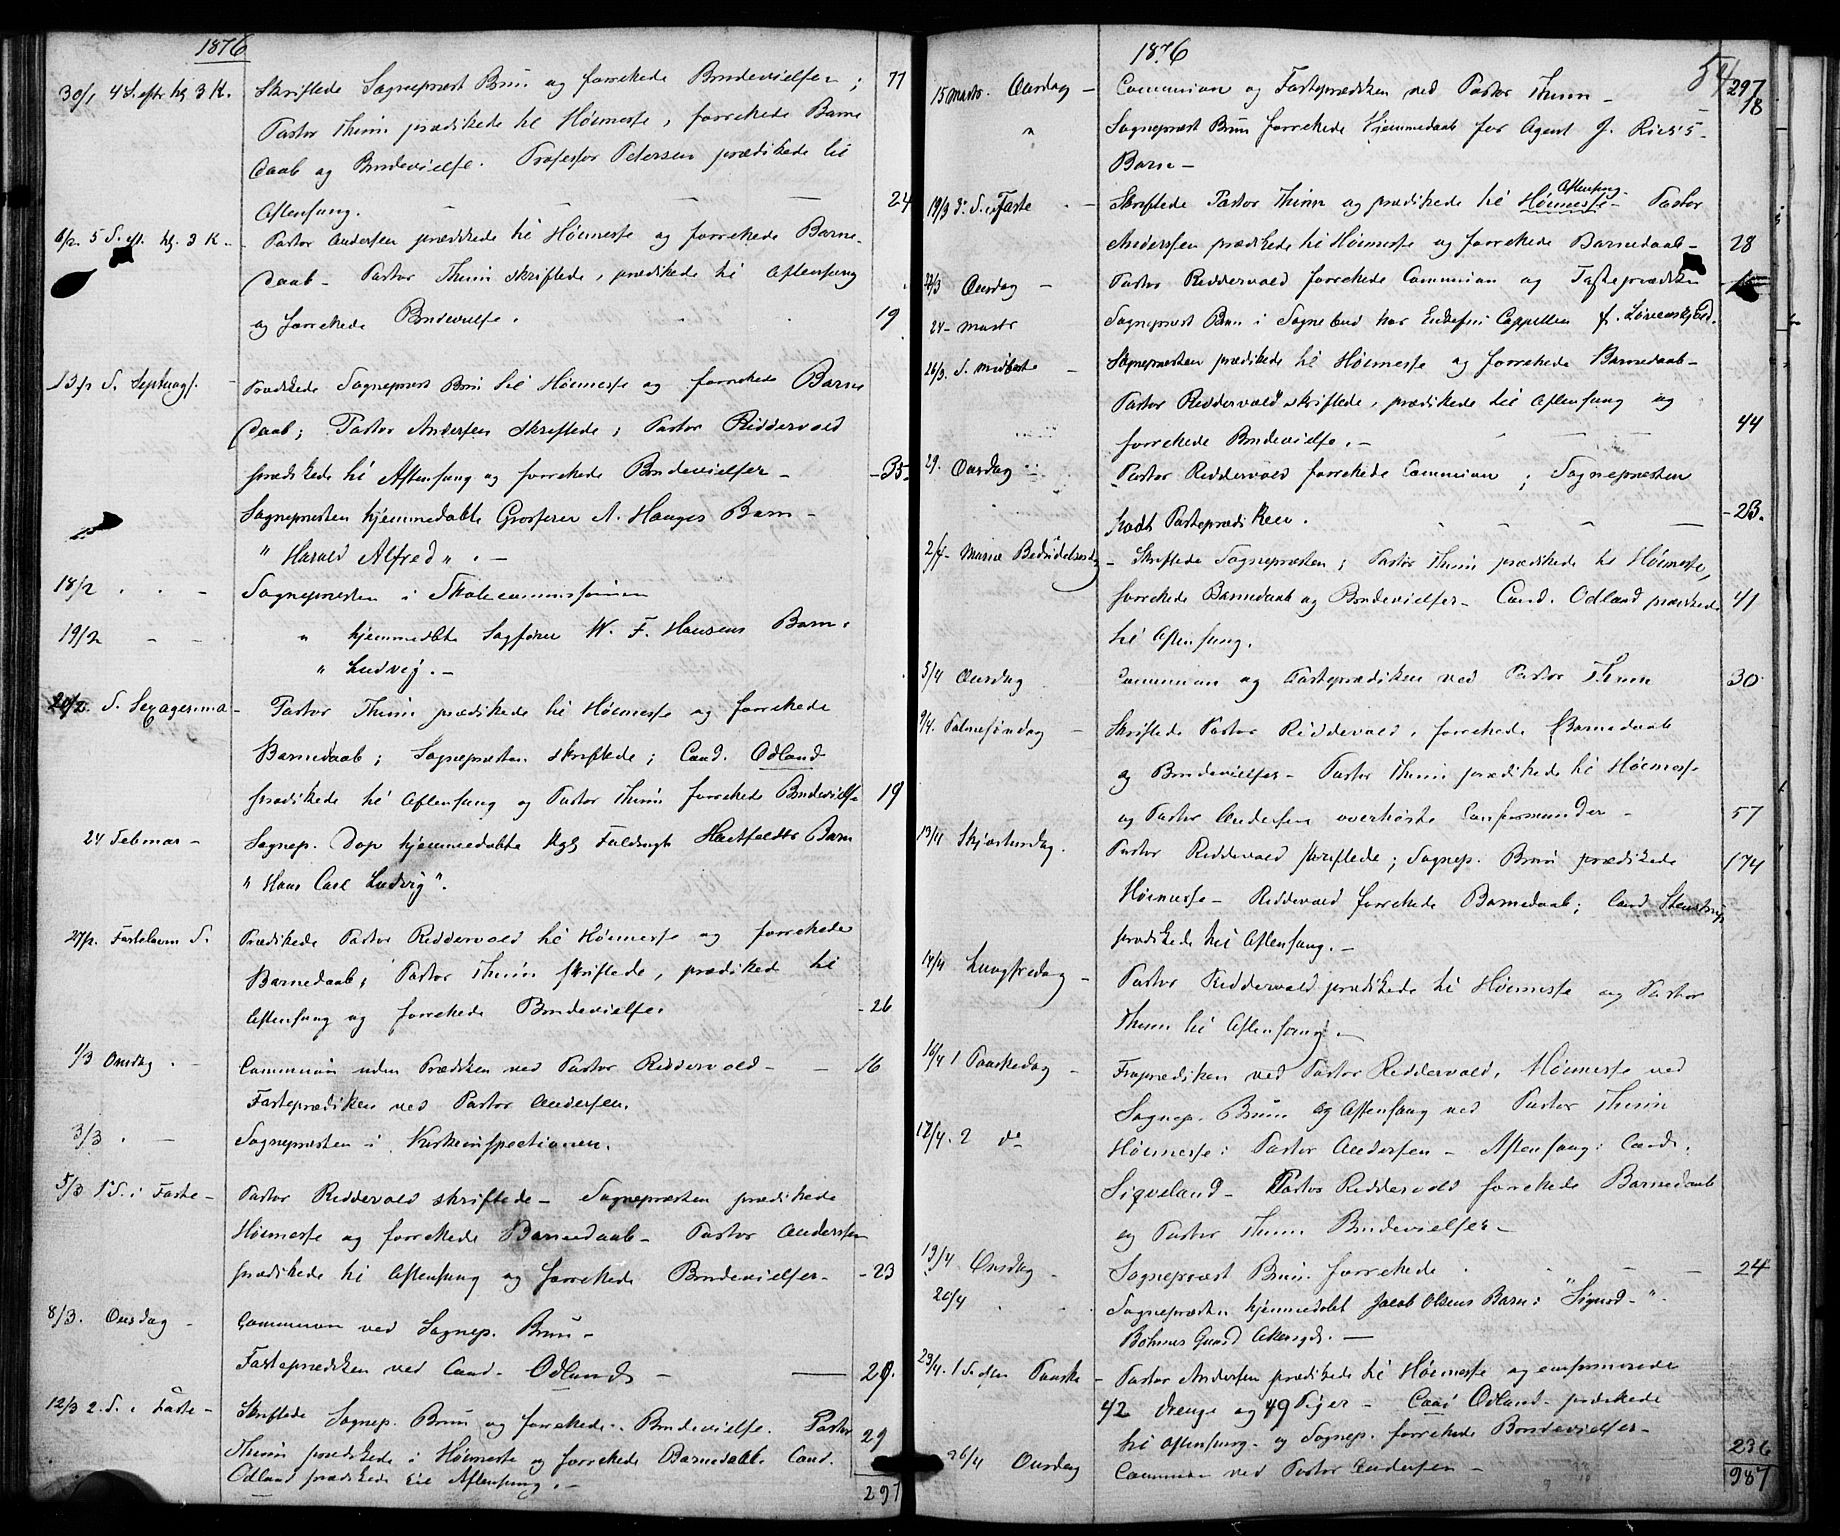 1876
30/1 4 S. eftr hg 3 K. Skriftede Sognepræst Bruu og forrettede Brudevielser; 77
Pastor Thurn prædikede til Høimesse, forrettede Barne
daab og Brudevielse. Professor Petersen prædikede til
Aftensang. — — 24
6/2. 5 S. eft. hg. 3 K. - Pastor Andersen prædikede til Høimesse og forrettede Barne-
daab - Pastor Thurn skriftede, prædikede til Aftensang
og forrettede Brudevielse. 19
13/2 S. Septuag. - Prædikede Sognepræst Bruu til Høimesse og forrettede Barne
daab; Pastor Andersen skriftede; Pastor Riddervold
prædikede til Aftensang og forrettede Brudevielser - - 35.
Sognepræsten hjemmedøbte Grosserer A. Hauges Barn -
" Harald Alfred " . -
18/2 . . - Sognepræsten i Skolecommissionen
19/2 - - " hjemmedøbte Sagfører W. F. Hansens Barn.
" Ludvig. -
20/2. S. Sexagesima - Pastor Thurn prædikede til Høimesse og forrettede
Barnedaab; Sognepræsten skriftede; Cand. Odland
prædikede til Aftensang og Pastor Thurn forrettede Brudevielse 19
24 Februar - Sognep. hjemmedøbte Barn
" Hans Carl Ludvig".
27/2. Fastelavn S. Prædikede Pastor Riddervold til Høimesse og forrettede
Barnedaab; Pastor Thurn skriftede, prædiked til
Aftensang og forrettede Brudevielse. - 26
1/3 Onsdag . - Communion uden Prædiken ved Pastor Riddervold - — 16
Fasteprædiken ved Pastor Andersen.
3/3 . - Sognepræsten i Kirkeinspectionen.
5/3 1 S. i Faste - Pastor Riddervold skriftede - Sognepræsten prædikede
Høimesse og forrettede Barnedaab - Pastor Andersen
prædikede til Aftensang og forrettede Brudevielser - - 23
8/3. Onsdag - Communion ved Sognep. Bruu -
Fasteprædiken ved Cand. Odland - — 29.
12/3 2. S. i Faste - Skriftede Sognep. Bruu og forrettede Brudevielse. Pastor 29
Thurn prædikede i Høimesse og forrettede Barnedaab. Cand.
Odland prædikede til Aftensang. - 297
1876 54
297
15 Marts. Onsdag - Communion og Fasteprædiken ved Pastor Thurn - 18
" Sognepræst Bruu forrettede Hjemmedaab for Agent J. Riis's -
Barn -
19/3 3. S. i Faste - Skriftede Pastor Thurn og prædikede til Høimesse Aftensang - Pastor
Andersen prædikede til Høimesse og forrettede Barnedaab - 28
22/3 Onsdag - Pastor Riddervold forrettede Communion og Fasteprædiken
24 - Marts Sognepræst Bruu i Sognebud hos Enkefru Cappelen f. Løvenskjold.
26/3. S. Midfaste - Sognepræsten prædikede til Høimesse og forrettede Barnedaab -
Pastor Riddervold skriftede, prædikede til Aftensang og
forrettede Brudevielse. - - - — 44
29. Onsdag - Pastor Riddervold forrettede Communion; Sognepræsten
holdt Fasteprædiken. - - - — - 23.
2/4 - Mariæ Bebudelsesdag - Skriftede Sognepræsten; Pastor Thurn prædikede til Høimesse,
forrettede Barnedaab og Brudevielser - Cand. Odland prædikede 41
til Aftensang.
5/4 Onsdag Communion og Fasteprædiken ved Pastor Thurn 30
9/4. Palmesøndag - Skriftede Pastor Riddervold, forrettede Barnedaab
og Brudevielser - Pastor Thurn prædikede til Høimesse
og Pastor Andersen overhørte Confirmander - 57
13/4 Skjærtorsdag. Pastor Riddervold skriftede; Sognep. Bruu prædikede 174
Høimesse - Riddervold forrettede Barnedaab; Cand Stenstrup
prædikede til Aftensang. -
14/4 Langfredag - Pastor Riddervold prædikede til Høimesse og Pastor
Thurn til Aftensang. -
16/4 1 Paaskedag - Froprædiken ved Pastor Riddervold, Høimesse ved
Sognep. Bruu og Aftensang ved Pastor Thurn
17/4. 2 do Høimesse: Pastor Andersen - Aftensang: Cand.
Siqveland - Pastor Riddervold forrettede Barnedaab
og Pastor Thurn Brudevielser -
19/4 Onsdag - Sognepræst Bruu forrettede . . — — 24
20/4 . . . Sognepræsten hjemmedøbt Jacob Olsens Barn: "Sigurd - ".
Bøhmes Gaard Akersgd. —
23/4. 1 S. eftr Paaske - Pastor Andersen prædikede til Høimesse og confirmerede
42 Drenge og 49 Piger - Cand Odland prædikede
til Aftensang - og Sognep. forrettede Brudevielser -
26/4 Onsdag Communion ved Pastor Andersen - 236
987